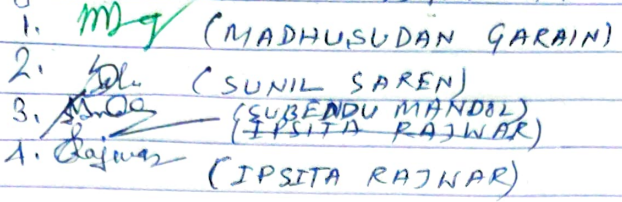 1. (MADHUSUDAN GARAIN)
2. (SUNIL SAREN)
3. (SUBENDU MANDOL)
(IPSITA RAJWAR)
4. Rajwar (IPSITA RAJWAR)